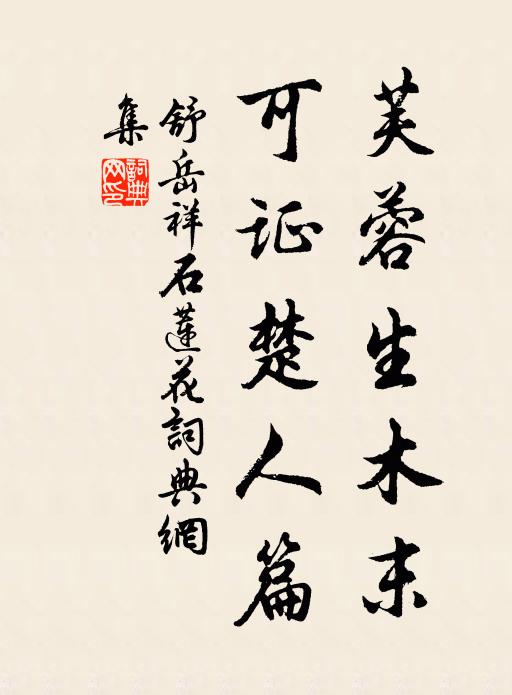 芙蓉生木末
可证楚人篇
舒岳祥石蓮花詞典網
集
詞典
网印